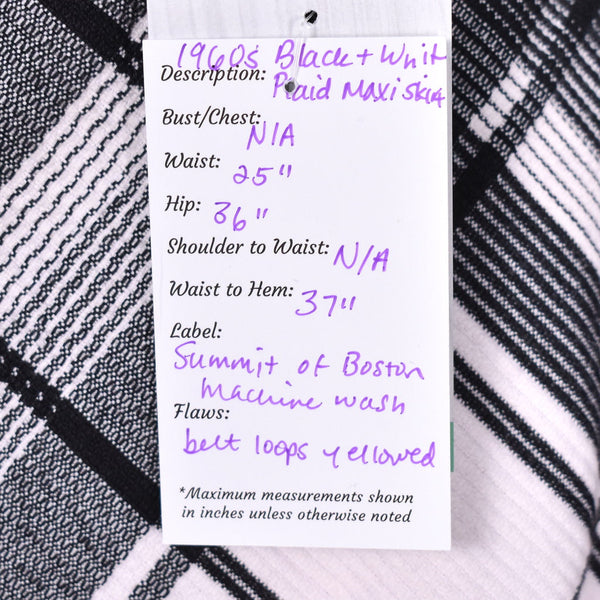 1960s Black + Whit
Description: Plaid Maxi skirt
Bust/Chest:
N/A
Waist: 25"
Hip: 36"
Shoulder to Waist: N/A
Waist to Hem: 37"
Label:
Summit of Boston
Machine wash
Flaws:
belt loops yellowed
*Maximum measurements shown
in inches unless otherwise noted